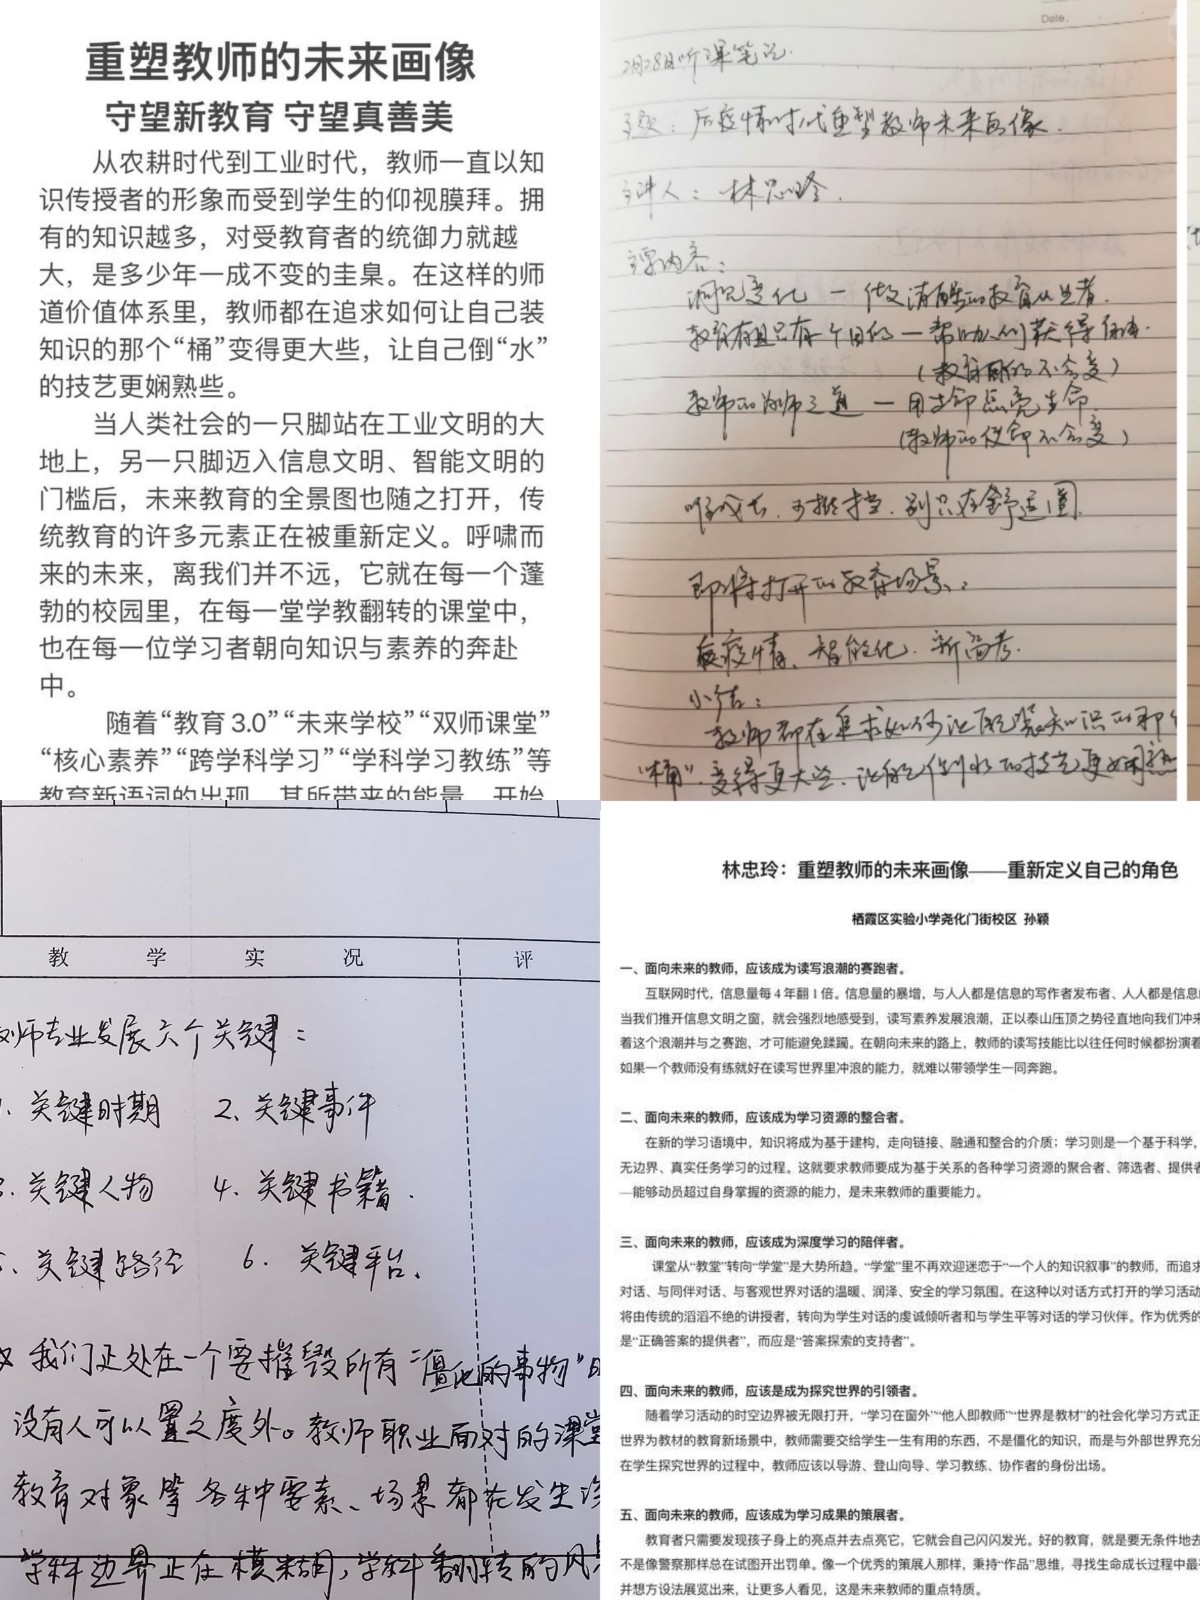 重塑教师的未来画像
守望新教育 守望真善美
从农耕时代到工业时代，教师一直以知
识传授者的形象而受到学生的仰视膜拜。拥
有的知识越多，对受教育者的统御力就越
大，是多少年一成不变的圭臬。在这样的师
道价值体系里，教师都在追求如何让自己装
知识的那个“桶”变得更大些，让自己倒“水”
的技艺更娴熟些。
当人类社会的一只脚站在工业文明的大
地上，另一只脚迈入信息文明、智能文明的
门槛后，未来教育的全景图也随之打开，传
统教育的许多元素正在被重新定义。呼啸而
来的未来，离我们并不远，它就在每一个蓬
勃的校园里，在每一堂学教翻转的课堂中，
也在每一位学习者朝向知识与素养的奔赴
中。
随着“教育3.0”“未来学校”“双师课堂”
“核心素养”“跨学科学习”“学科学习教练”等
教育新语词的出现，其所带来的能量，开始
Date.
2月28日听课笔记.
主题：后疫情时代重塑教师未来画像.
主讲人：林忠玲.
主要内容：
洞见变化 — 做清醒的教育从业者.
教育有且只有一个目的 — 帮助人们获得自由.
（教育目的不会变）
教师的为师之道 — 用生命点亮生命
（教师的使命不会变）
唯成长.可抵挡.别只在舒适圈.
即将打开的教育场景：
疫情、智能化.新高考.
小结：
教师都在追求如何让自己装知识的那个
“桶”.变得更大些、让自己倒水的技艺更娴熟
教 学 实 况
评
教师专业发展六个关键：
1. 关键时期 2. 关键事件
3. 关键人物 4. 关键书籍.
5. 关键路径 6. 关键平台.
我们正处在一个要摧毁所有“僵化的事物”
没有人可以置之度外。教师职业面对的课堂
教育对象等各种要素、场景都在发生
学科边界正在模糊，学科翻转的风
林忠玲：重塑教师的未来画像——重新定义自己的角色
栖霞区实验小学尧化门街校区 孙颖
一、面向未来的教师，应该成为读写浪潮的赛跑者。
互联网时代，信息量每4年翻1倍。信息量的暴增，与人人都是信息的写作者发布者、人人都是信息
当我们推开信息文明之窗，就会强烈地感受到，读写素养发展浪潮，正以泰山压顶之势径直地向我们冲来
着这个浪潮并与之赛跑，才可能避免蹂躏。在朝向未来的路上，教师的读写技能比以往任何时候都扮演着
如果一个教师没有练就好在读写世界里冲浪的能力，就难以带领学生一同奔跑。
二、面向未来的教师，应该成为学习资源的整合者。
在新的学习语境中，知识将成为基于建构，走向链接、融通和整合的介质；学习则是一个基于科学，
无边界、真实任务学习的过程。这就要求教师要成为基于关系的各种学习资源的聚合者、筛选者、提供者
—能够动员超过自身掌握的资源的能力，是未来教师的重要能力。
三、面向未来的教师，应该成为深度学习的陪伴者。
课堂从“教堂”转向“学堂”是大势所趋。“学堂”里不再欢迎迷恋于“一个人的知识叙事”的教师，而追求
对话、与同伴对话、与客观世界对话的温暖、润泽、安全的学习氛围。在这种以对话方式打开的学习活动
将由传统的滔滔不绝的讲授者，转向为学生对话的虔诚倾听者和与学生平等对话的学习伙伴。作为优秀的
是“正确答案的提供者”，而应是“答案探索的支持者”。
四、面向未来的教师，应该是成为探究世界的引领者。
随着学习活动的时空边界被无限打开，“学习在窗外”“他人即教师”“世界是教材”的社会化学习方式正
世界为教材的教育新场景中，教师需要交给学生一生有用的东西，不是僵化的知识，而是与外部世界充分
在学生探究世界的过程中，教师应该以导游、登山向导、学习教练、协作者的身份出场。
五、面向未来的教师，应该成为学习成果的策展者。
教育者只需要发现孩子身上的亮点并去点亮它，它就会自己闪闪发光。好的教育，就是要无条件地去
不是像警察那样总在试图开出罚单。像一个优秀的策展人那样，秉持“作品”思维，寻找生命成长过程中最
并想方设法展览出来，让更多人看见，这是未来教师的重点特质。